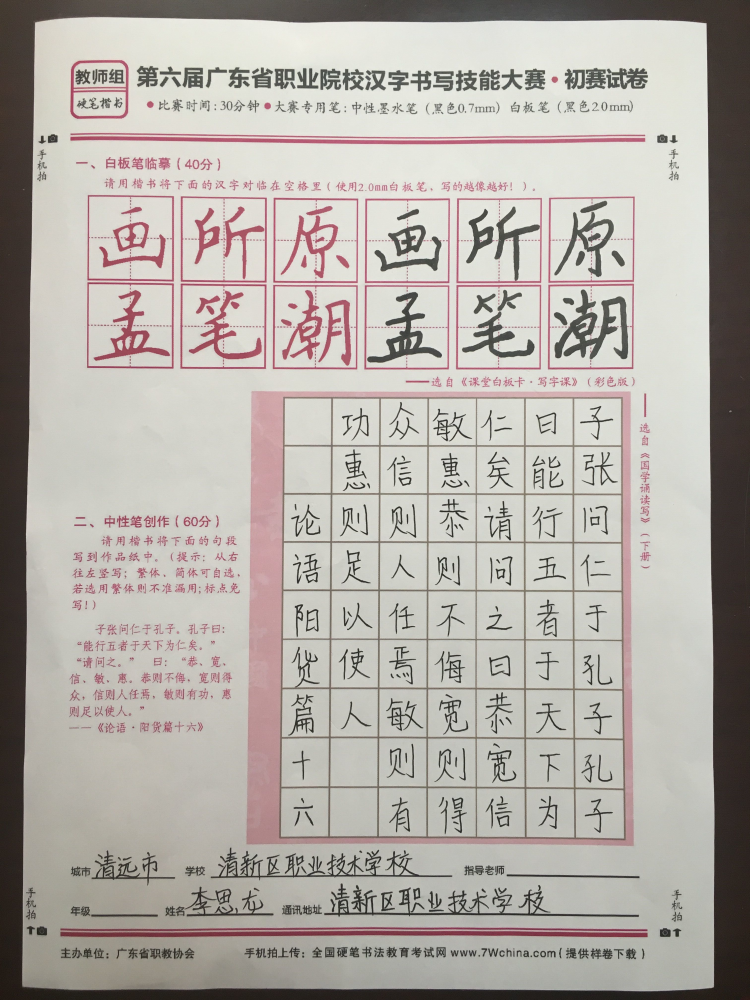 教师组
硬笔楷书
第六届广东省职业院校汉字书写技能大赛·初赛试卷
●比赛时间:30分钟●大赛专用笔:中性墨水笔(黑色0.7mm) 白板笔(黑色2.0mm)
手机拍
手机拍
一、白板笔临摹(40分)
请用楷书将下面的汉字对临在空格里(使用2.0mm白板笔、写的越像越好!)。
画所原画所原
孟笔潮孟笔潮
——选自《课堂白板卡·写字课》(彩色版)
——选自《国学诵读写》(下册)
子张问仁于孔子孔子
曰能行五者于天下为
仁矣请问之曰恭宽信
敏惠恭则不侮宽则得
众信则人任焉敏则有
功惠则足以使人
论语阳货篇十六
二、中性笔创作(60分)
请用楷书将下面的句段
写到作品纸中。(提示:从右
往左竖写;繁体、简体可自选,
若选用繁体则不准漏用;标点免
写!)
子张问仁于孔子。孔子曰:
“能行五者于天下为仁矣。”
“请问之。” 曰:“恭、宽、
信、敏、惠。恭则不侮,宽则得
众,信则人任焉,敏则有功,惠
则足以使人。”
——《论语·阳货篇十六》
城市 清远市 学校 清新区职业技术学校 指导老师
年级 姓名 李思龙 通讯地址 清新区职业技术学校
手机拍
手机拍
主办单位:广东省职教协会 手机拍上传:全国硬笔书法教育考试网 www.7Wchina.com(提供样卷下载)